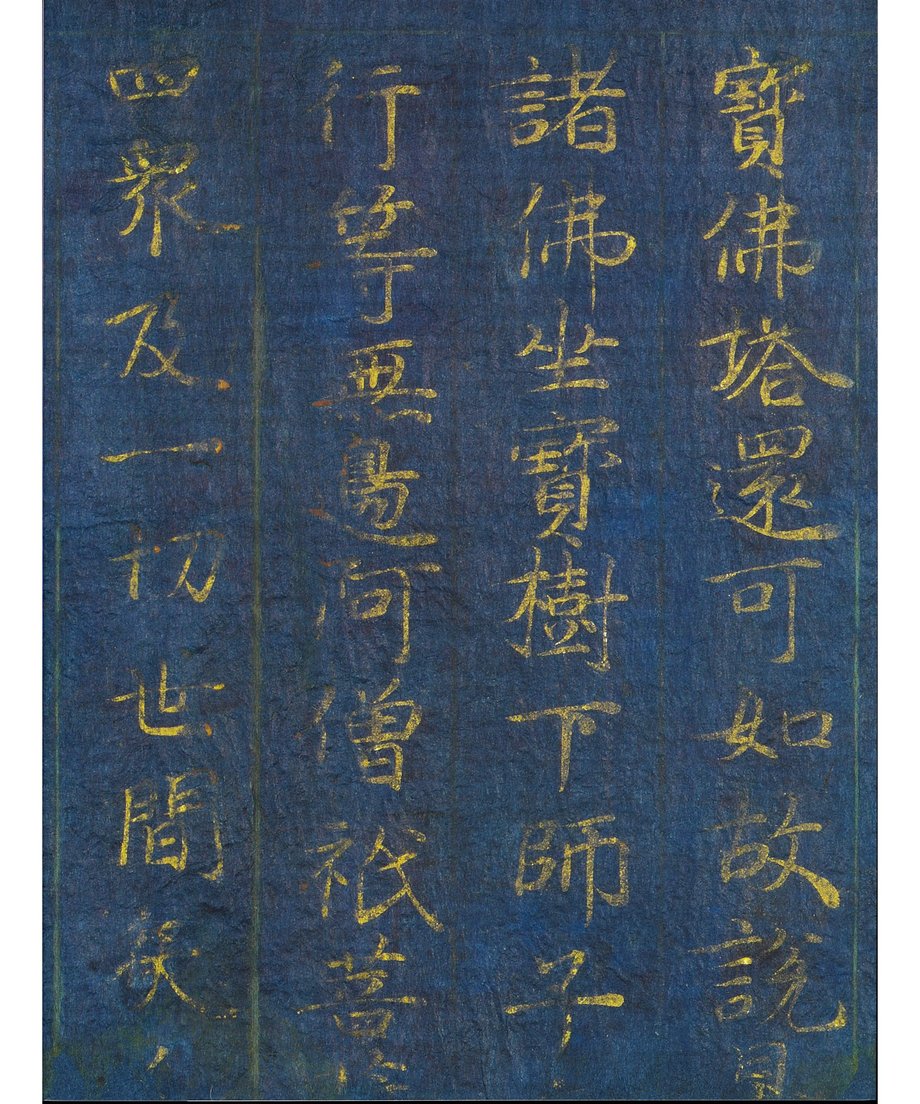 寶佛塔還可如故說
諸佛坐寶樹下師子
行等無邊阿僧祇菩
四衆及一切世間